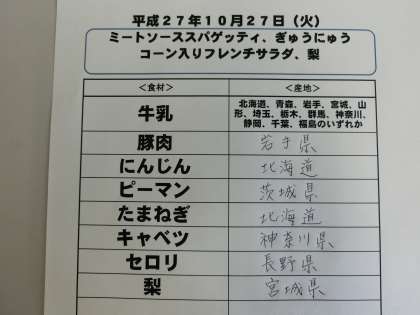 平成27年10月27日（火）
ミートソーススパゲッティ、ぎゅうにゅう
コーン入りフレンチサラダ、梨
＜食材＞ ＜産地＞
牛乳 北海道、青森、岩手、宮城、山
形、埼玉、栃木、群馬、神奈川、
静岡、千葉、福島のいずれか
豚肉 岩手県
にんじん 北海道
ピーマン 茨城県
たまねぎ 北海道
キャベツ 神奈川県
セロリ 長野県
梨 宮城県